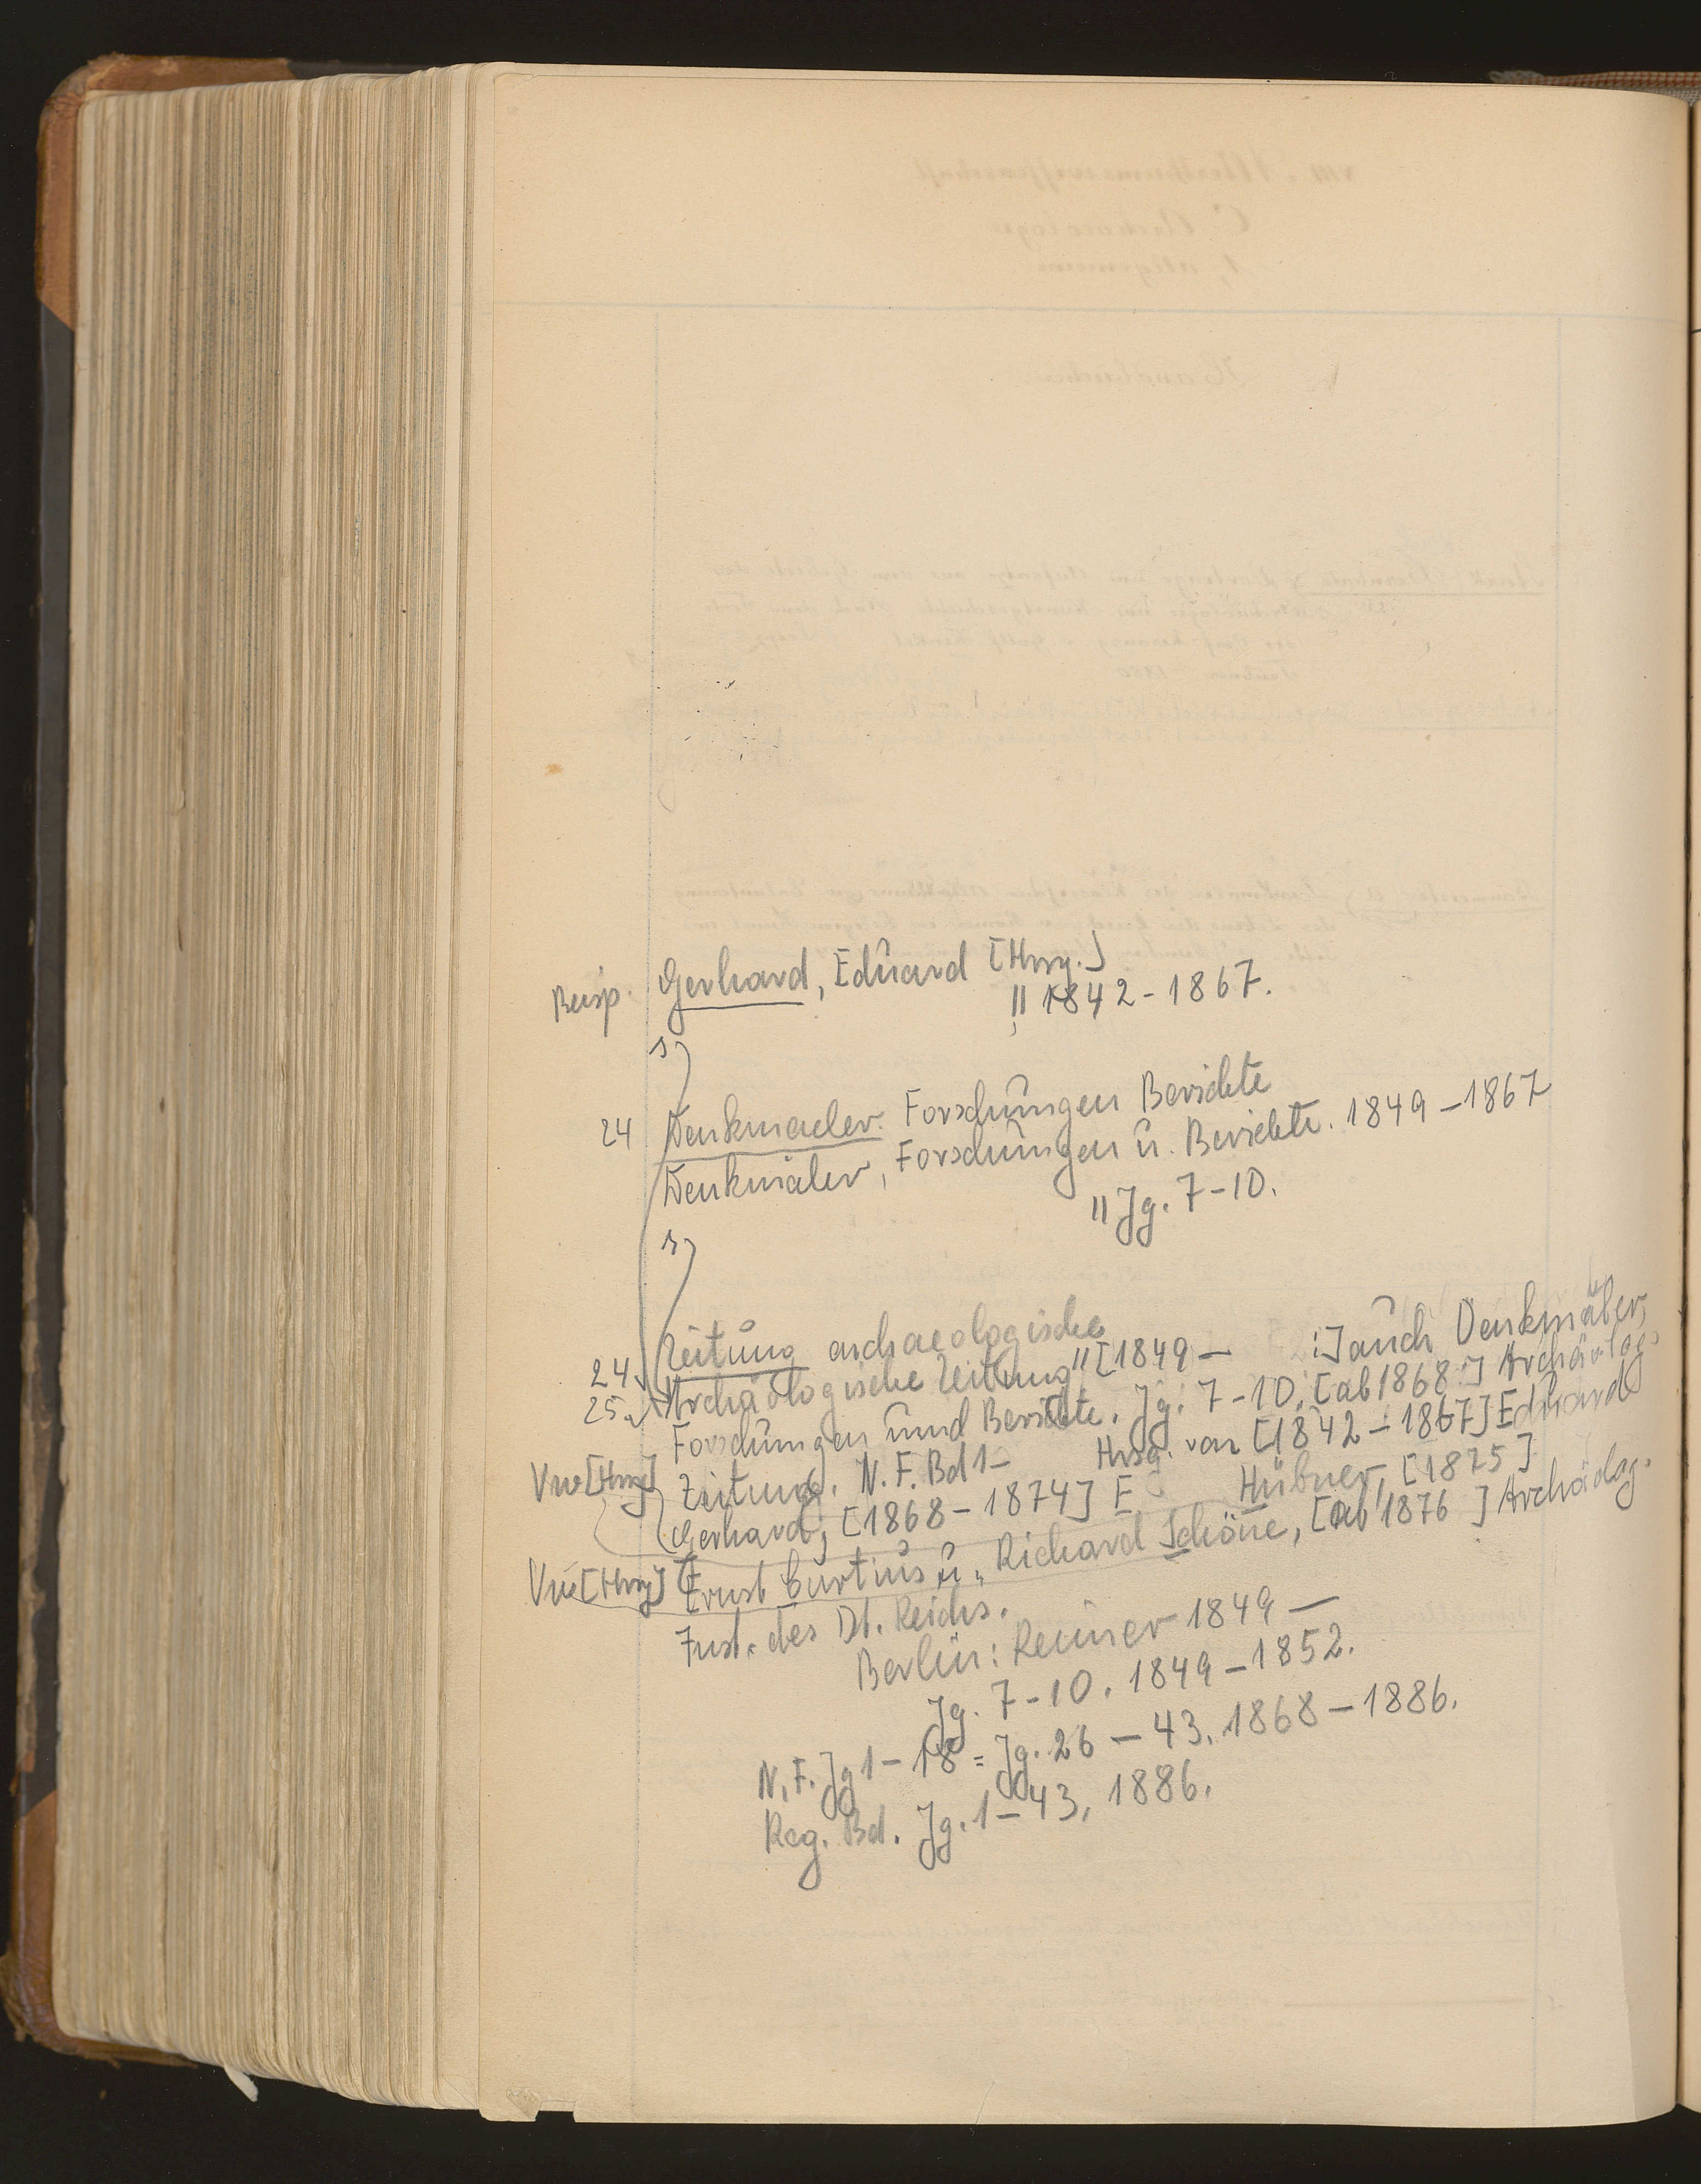 Gerhard, Eduard [Hrsg.]
" 1842-1867.
s)
24 Denkmaeler. Forschungen Berichte
Denkmäler, Forschungen u. Berichte. 1849-1867
" Jg. 7-10.
s)
24 Zeitung archaeologische
25 Archäologische Zeitung" [1849 - :] auch Denkmäler,
Forschungen und Berichte. Jg. 7-10. [ab 1868:] Archäolog.
Zeitung. N.F. Bd 1- Hrsg. von [1842-1867] Eduard
Vw [Hrsg]
Gerhard, [1868-1874] E Hübner, [1875]
Vw [Hrsg] Ernst Curtius u. Richard Schöne, [ab 1876 ] Archäolog.
Inst. des Dt. Reichs.
Berlin: Reimer 1849 —
Jg. 7-10. 1849-1852.
N.F. Jg 1-18 = Jg. 26-43. 1868-1886.
Reg. Bd. Jg. 1-43, 1886.